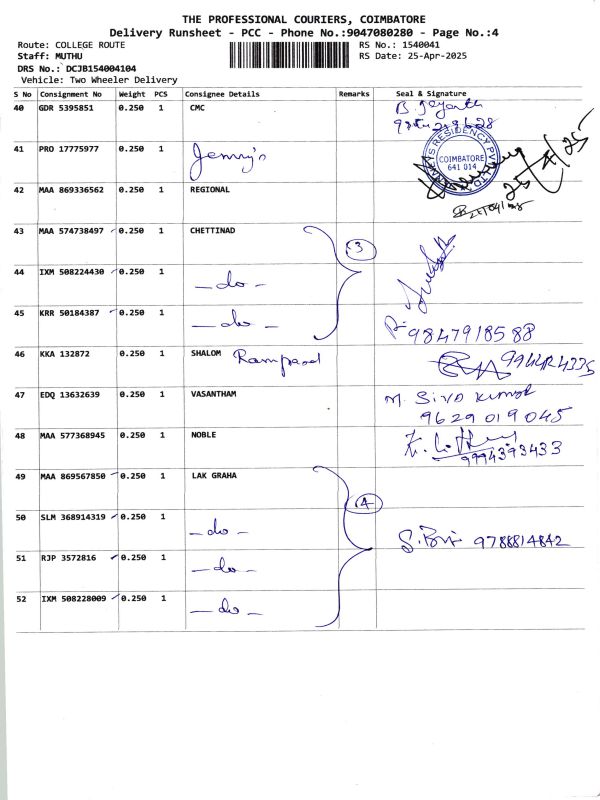 THE PROFESSIONAL COURIERS, COIMBATORE
Delivery Runsheet - PCC - Phone No.:9047080280 - Page No.:4
Route: COLLEGE ROUTE RS No.: 1540041
Staff: MUTHU RS Date: 25-Apr-2025
DRS No.: DCJB154004104
Vehicle: Two Wheeler Delivery
S No Consignment No Weight PCS Consignee Details Remarks Seal & Signature
40 GDR 5395851 0.250 1 CMC
41 PRO 17775977 0.250 1 Jenny's
RESIDENCY PVT LTD
COIMBATORE
641 014
25/4/25
42 MAA 869336562 0.250 1 REGIONAL
43 MAA 574738497 0.250 1 CHETTINAD 3
44 IXM 508224430 0.250 1 — do —
45 KRR 50184387 0.250 1 — do — 9847918588
46 KKA 132872 0.250 1 SHALOM Ramprasad
47 EDQ 13632639 0.250 1 VASANTHAM M. Siva Kumar
9629019045
48 MAA 577368945 0.250 1 NOBLE 9994393433
49 MAA 869567850 0.250 1 LAK GRAHA 4
50 SLM 368914319 0.250 1 — do —
51 RJP 3572816 0.250 1 — do — 9788814842
52 IXM 508228009 0.250 1 — do —